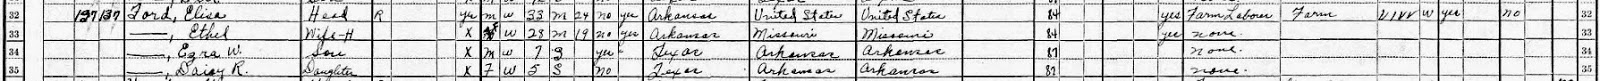 32 137 137 Ford, Elisa Head R yes m w 33 m 24 no yes Arkansas United States United States 84 yes Farm Labour Farm VIVV w yes no 32
33 ——, Ethel Wife-H X F w 28 m 19 no yes Arkansas Missouri Missouri 84 yes none. 33
34 ——, Ezra W. Son X m w 7 S yes Texas Arkansas Arkansas 87 none. 34
35 ——, Daisy R. Daughter X F w 5 S no Texas Arkansas Arkansas 87 none. 35